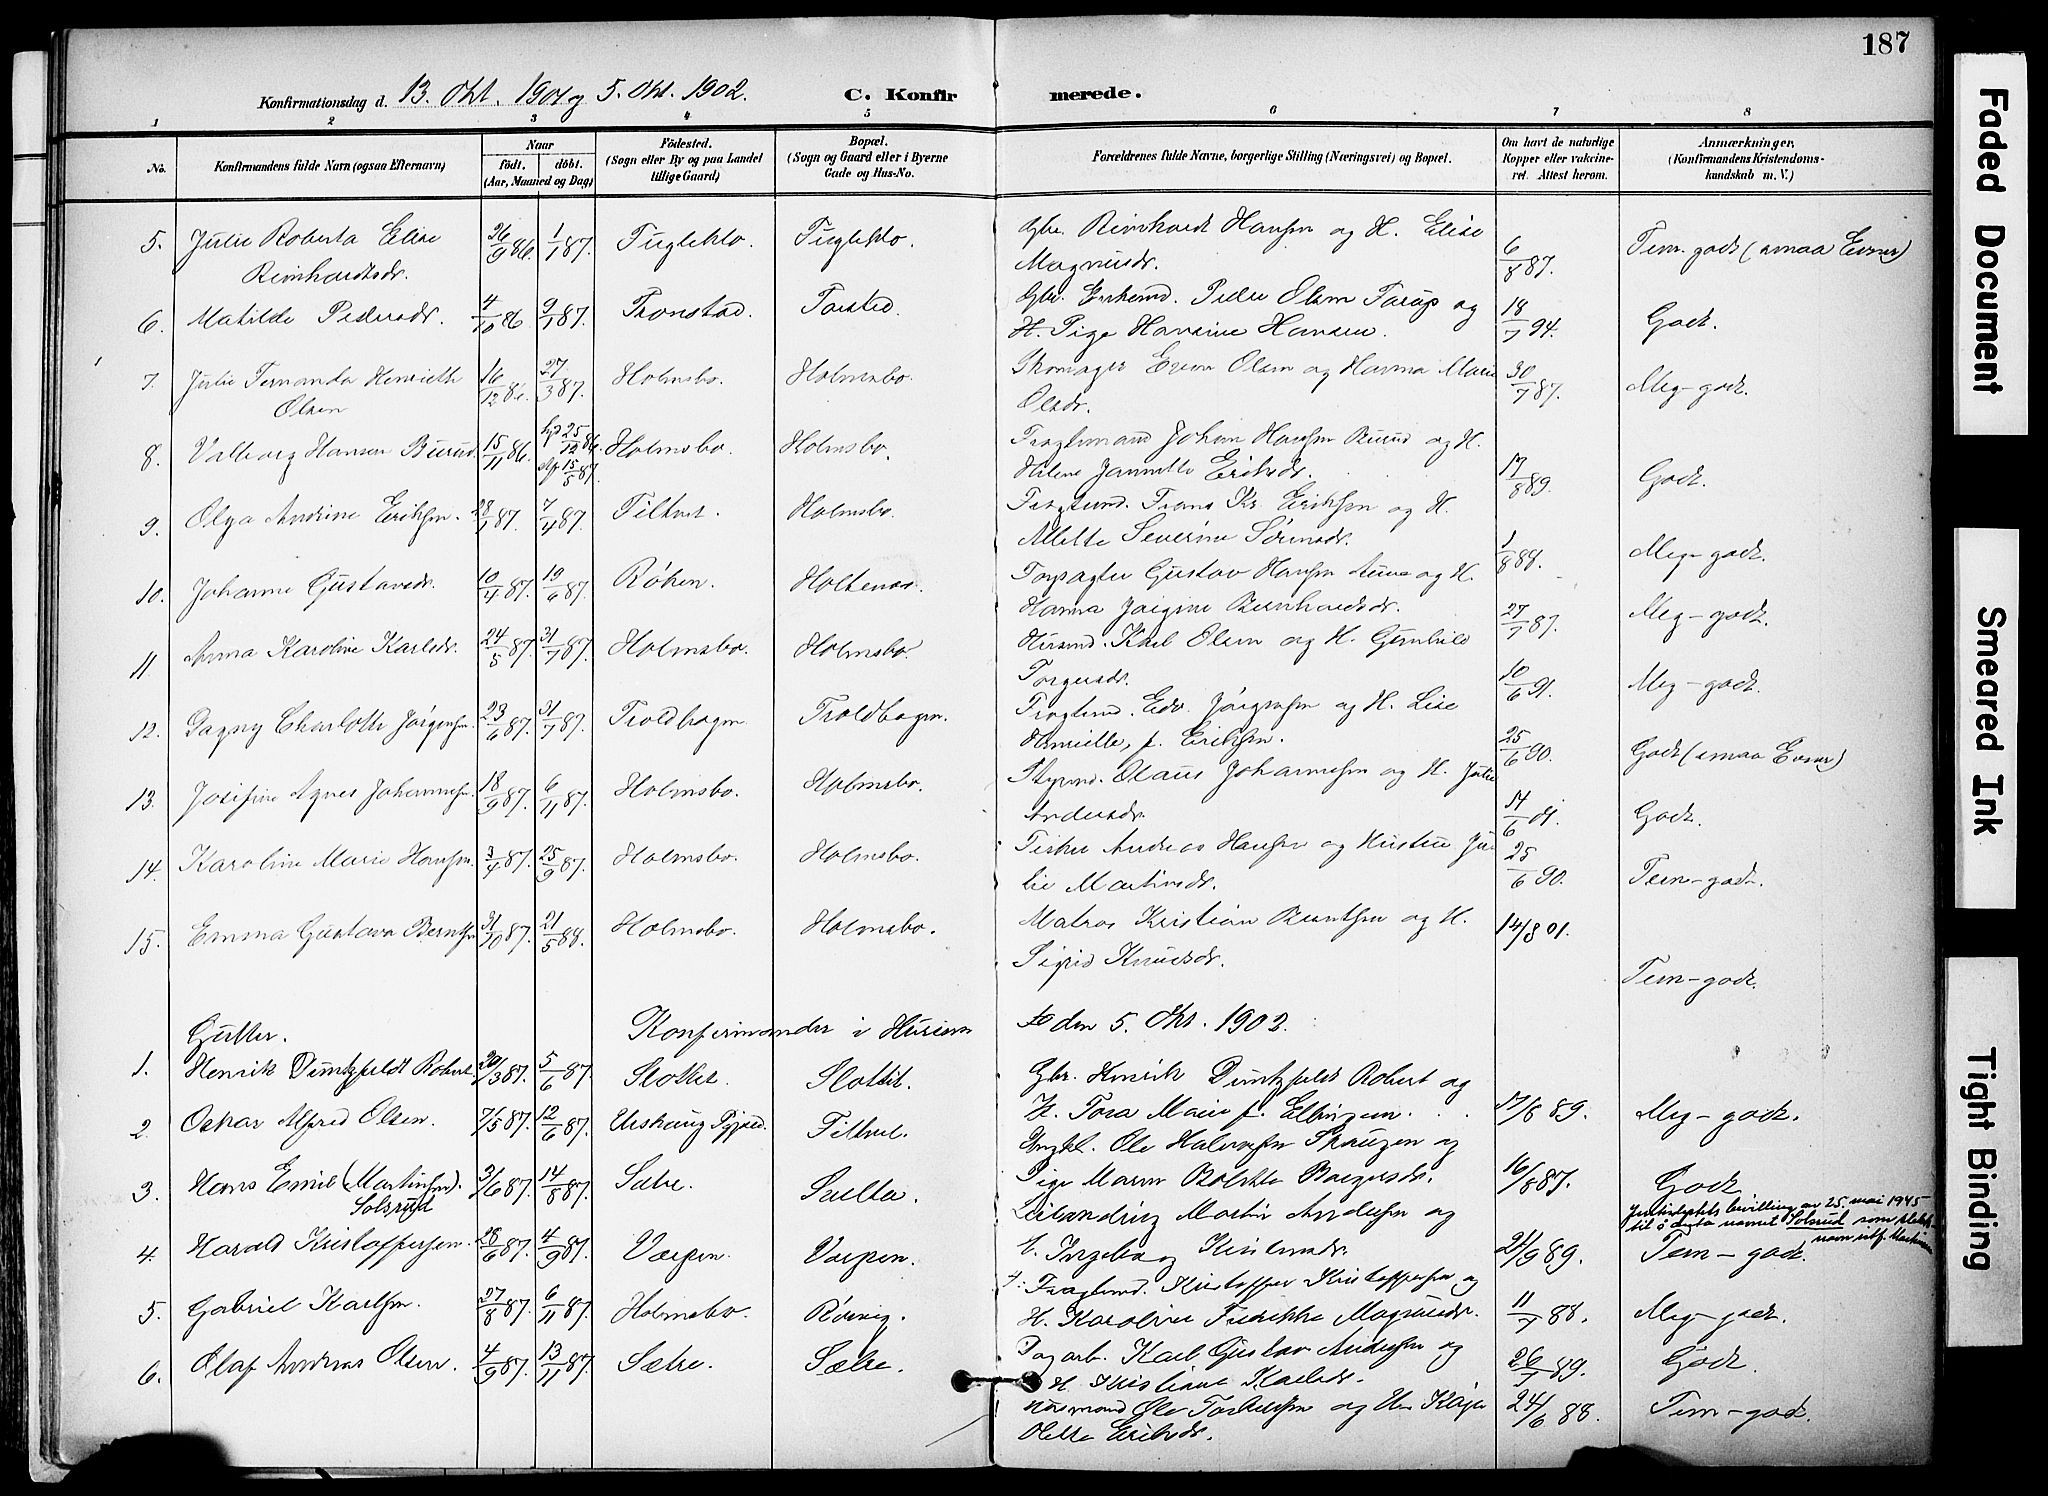 187
Konfirmationsdag d. 13. Okt. 1901 og 5. Okt. 1902.
C. Konfirmerede.
1 2 3 4 5 6 7 8
No.
Konfirmandens fulde Navn (ogsaa Efternavn)
Naar
født. døbt.
(Aar, Maaned og Dag)
Fødested.
(Sogn eller By og paa Landet
tillige Gaard)
Bopæl.
(Sogn og Gaard eller i Byerne
Gade og Hus-No.
Forældrenes fulde Navne, borgerlige Stilling (Næringsvei) og Bopæl.
Om havt de naturlige
Kopper eller vakcine-
ret. Attest herom.
Anmærkninger.
(Konfirmandens Kristendoms-
kundskab m. V.)
5. Julie Roberta Elise Reinhardtsdr. 26/9 86. 1/1 87. Fuglekto. Fuglekto. Gbr. Reinhardt Hansen og H. Elise Magnusdr. 6/8 87. Tem. godt (smaa Evner)
6. Matilde Pedersdr. 4/10 86 9/1 87. Tronstad. Tofsted. Gbr. Enkemd. Peder Olsen Tarup og H. Pige Hansine Hansen. 18/7 94. Godt.
7. Julie Fernanda Henriette Olsen 16/12 86. 27/3 87. Holmsbo. Holmsbo. Skomager Even Olsen og Hanna Marie Olsdr. 30/7 87. Meg-godt.
8. Valborg Hansen Burud. 15/11 86. hjd 25/12 86. 15/5 87. Holmsbo. Holmsbo. Fragtemand Johan Hansen Burud og H. Helene Jannette Eriksdr. 17/8 89. Godt.
9. Olga Andrine Eriksen. 28/1 87. 7/4 87. Filtvet. Holmsbo. Fragtemd. Frans Kr. Eriksen og H. Mette Severine Sørensdr. 1/8 88. Meg-godt.
10. Johanne Gustavsdr. 10/4 87. 19/6 87. Røken. Holtenæs. Forpagter Gustav Hansen Aune og H. Hanna Jørgine Bernhardtsdr. 27/7 87. Meg-godt.
11 Anna Karoline Karlsdr. 24/5 87. 31/7 87. Holmsbo. Holmsbo. Husmd. Karl Olsen og H. Gunhild Torgersdr. 10/6 91. Meg-godt.
12. Dagny Charlotte Jørgensen. 23/6 87. 31/7 87. Troldhagen. Troldhagen. Fragtemd. Edv. Jørgensen og H. Lise Henriette, f. Eriksen. 25/6 90. Godt (smaa Evner)
13. Josefine Agnes Johannesen. 18/9 87. 6/11 87. Holmsbo. Holmsbo. Styrmd. Olaus Johannesen og H. Julie Andersdr. 14/6 01. Godt.
14. Karoline Marie Hansen. 3/4 87. 25/9 87. Holmsbo. Holmsbo. Fisker Andreas Hansen og Hustru Julie Martinsdr. 25/6 90. Tem-godt.
15. Emma Gustava Berntsen 31/10 87. 21/5 88. Holmsbo. Holmsbo. Matros Kristian Berntsen og H. Sigrid Knudsdr. 14/8 01. Tem-godt.
Gutter. Konfirmander i Hurum den 5. Okt. 1902.
1. Henrik Duntzfeldt Robert. 20/3 87. 5/6 87. Slottet. Slottet. Gbr. Henrik Duntzfeldt Robert og H. Tora Marie f. Ellingsen. 17/8 89. Meg-godt.
2. Oskar Alfred Olsen. 7/5 87. 12/6 87. Filtvet. Ole Halvorsen Skaugen og Pige Maren Borgersdr. 16/8 87. Godt
3. Hans Emil (Martinsen). Solsrud 3/6 87. 14/8 87. Sætre. Leilænding Martin Andersen og H. Ingeborg 21/9 89. Tem-godt.
av 25. mai 1945
til å anta navnet Solsrud som slekts-
navn istf. Martinsen
4. Harald Kristoffersen. 28/6 87. 4/9 87. Verpen. Verpen. 4: Fragtemd. Kristoffer Kristoffersen og H. Karoline Fredrikke Magnusdr. 11/7 88. Meg-godt.
5. Gabriel Karlsen. 27/8 87. 6/11 87. Holmsbo. Rødvig. Dagarb. Karl Gustav Andersen og H. Kristiane Karlsdr. 26/7 89. Godt.
6. Olaf Andreas Olsen. 4/9 87. 13/11 87. Sætre. Sætre. Husmand Ole Torkelsen og Hu Kaja Olette Eriksdr. 24/6 88. Tem-godt.
Faded Document
Smeared Ink
Tight Binding